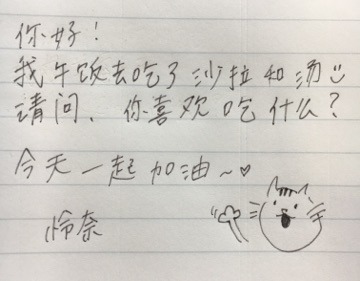 你好！
我午饭去吃了沙拉和汤
请问、你喜欢吃什么？
今天一起加油~♡
怜奈